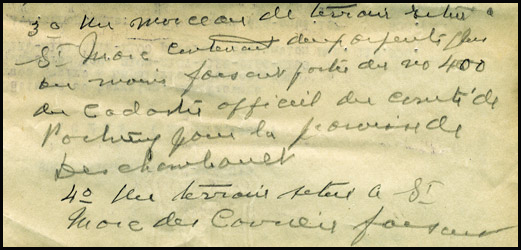 3o Un morceau de terrain situé à
St Marc contenant deux arpents plus
ou moins faisant partie du no 400
du Cadastre officiel du comté de
Portneuf pour la paroisse de
Deschambault
4o Un terrain situé a St
Marc des Carrières faisant